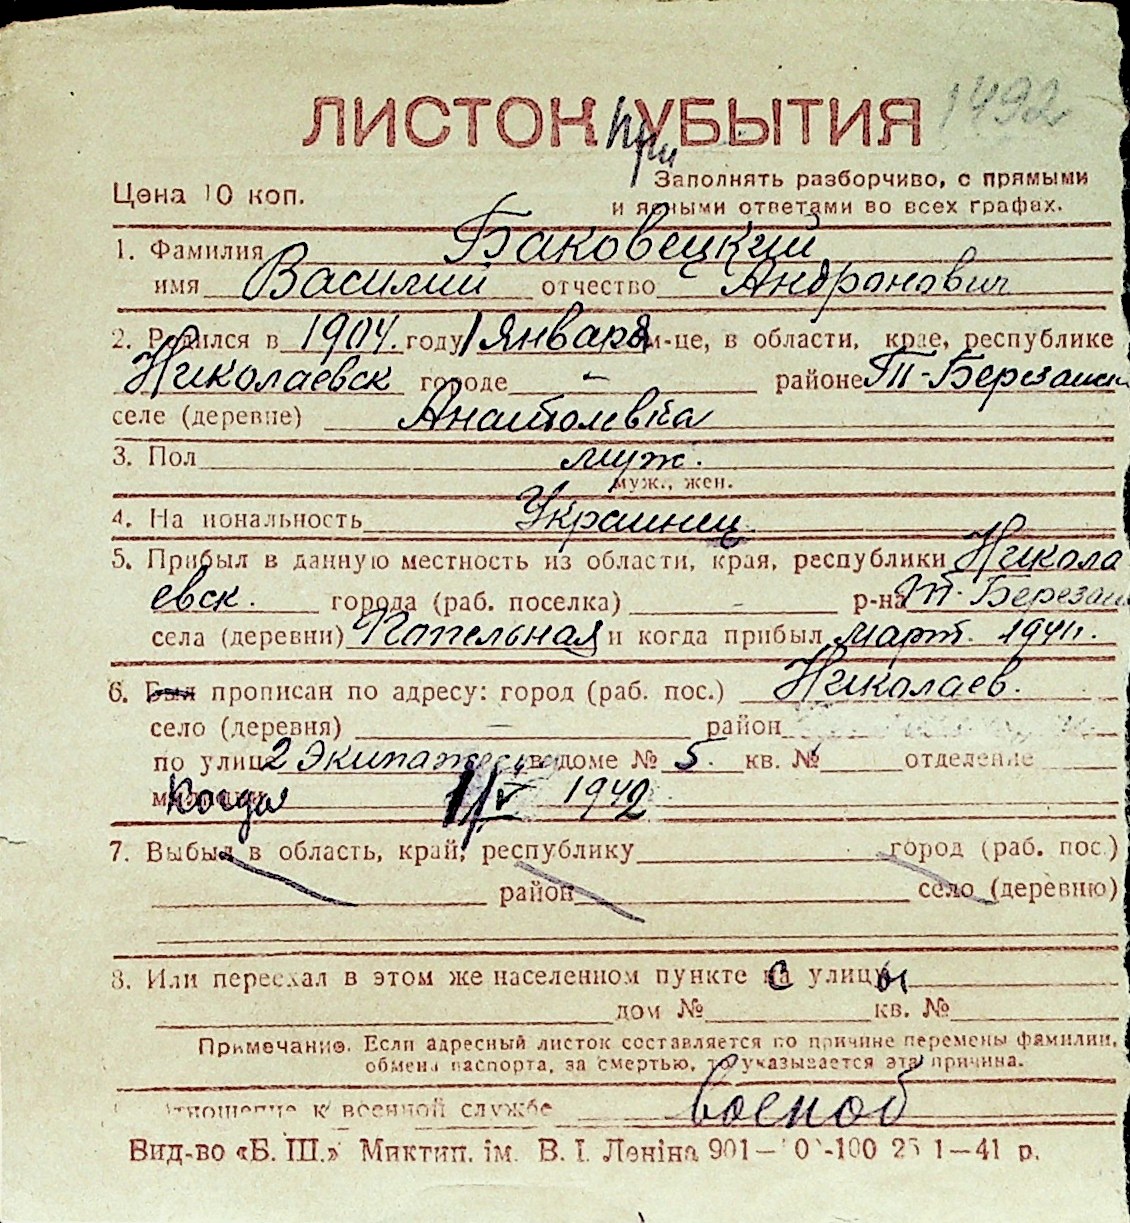 1492
ЛИСТОК при УБЫТИЯ
Цена 10 коп.
Заполнять разборчиво, с прямыми
и ясными ответами во всех графах.
1. Фамилия Баковецкий
имя Василий отчество Андронович
2. Родился в 1904. году 1 января м-це, в области, крае, республике
Николаевск городе - районе Т-Березанск
селе (деревне) Анатолевка
3. Пол муж.
муж., жен.
4. Национальность Украинец
5. Прибыл в данную местность из области, края, республики Никола
евск. города (раб. поселка) - р-на Т-Березан
села (деревни) Попельная и когда прибыл март. 1941.
6. Был прописан по адресу: город (раб. пос.) Николаев.
село (деревня) — район
по улице 2 Экипажеская доме № 5. кв. № отделение
Когда 1/V 1942
7. Выбыл в область, край, республику город (раб. пос.)
район село (деревню)
8. Или переехал в этом же населенном пункте с улицы
дом № кв. №
Примечание. Если адресный листок составляется по причине перемены фамилии,
обмена паспорта, за смертью, то указывается эта причина.
Отношение к военной службе военоб
Вид-во «Б. Ш.» Миктип. ім. В. І. Леніна 901— -100 1—41 р.